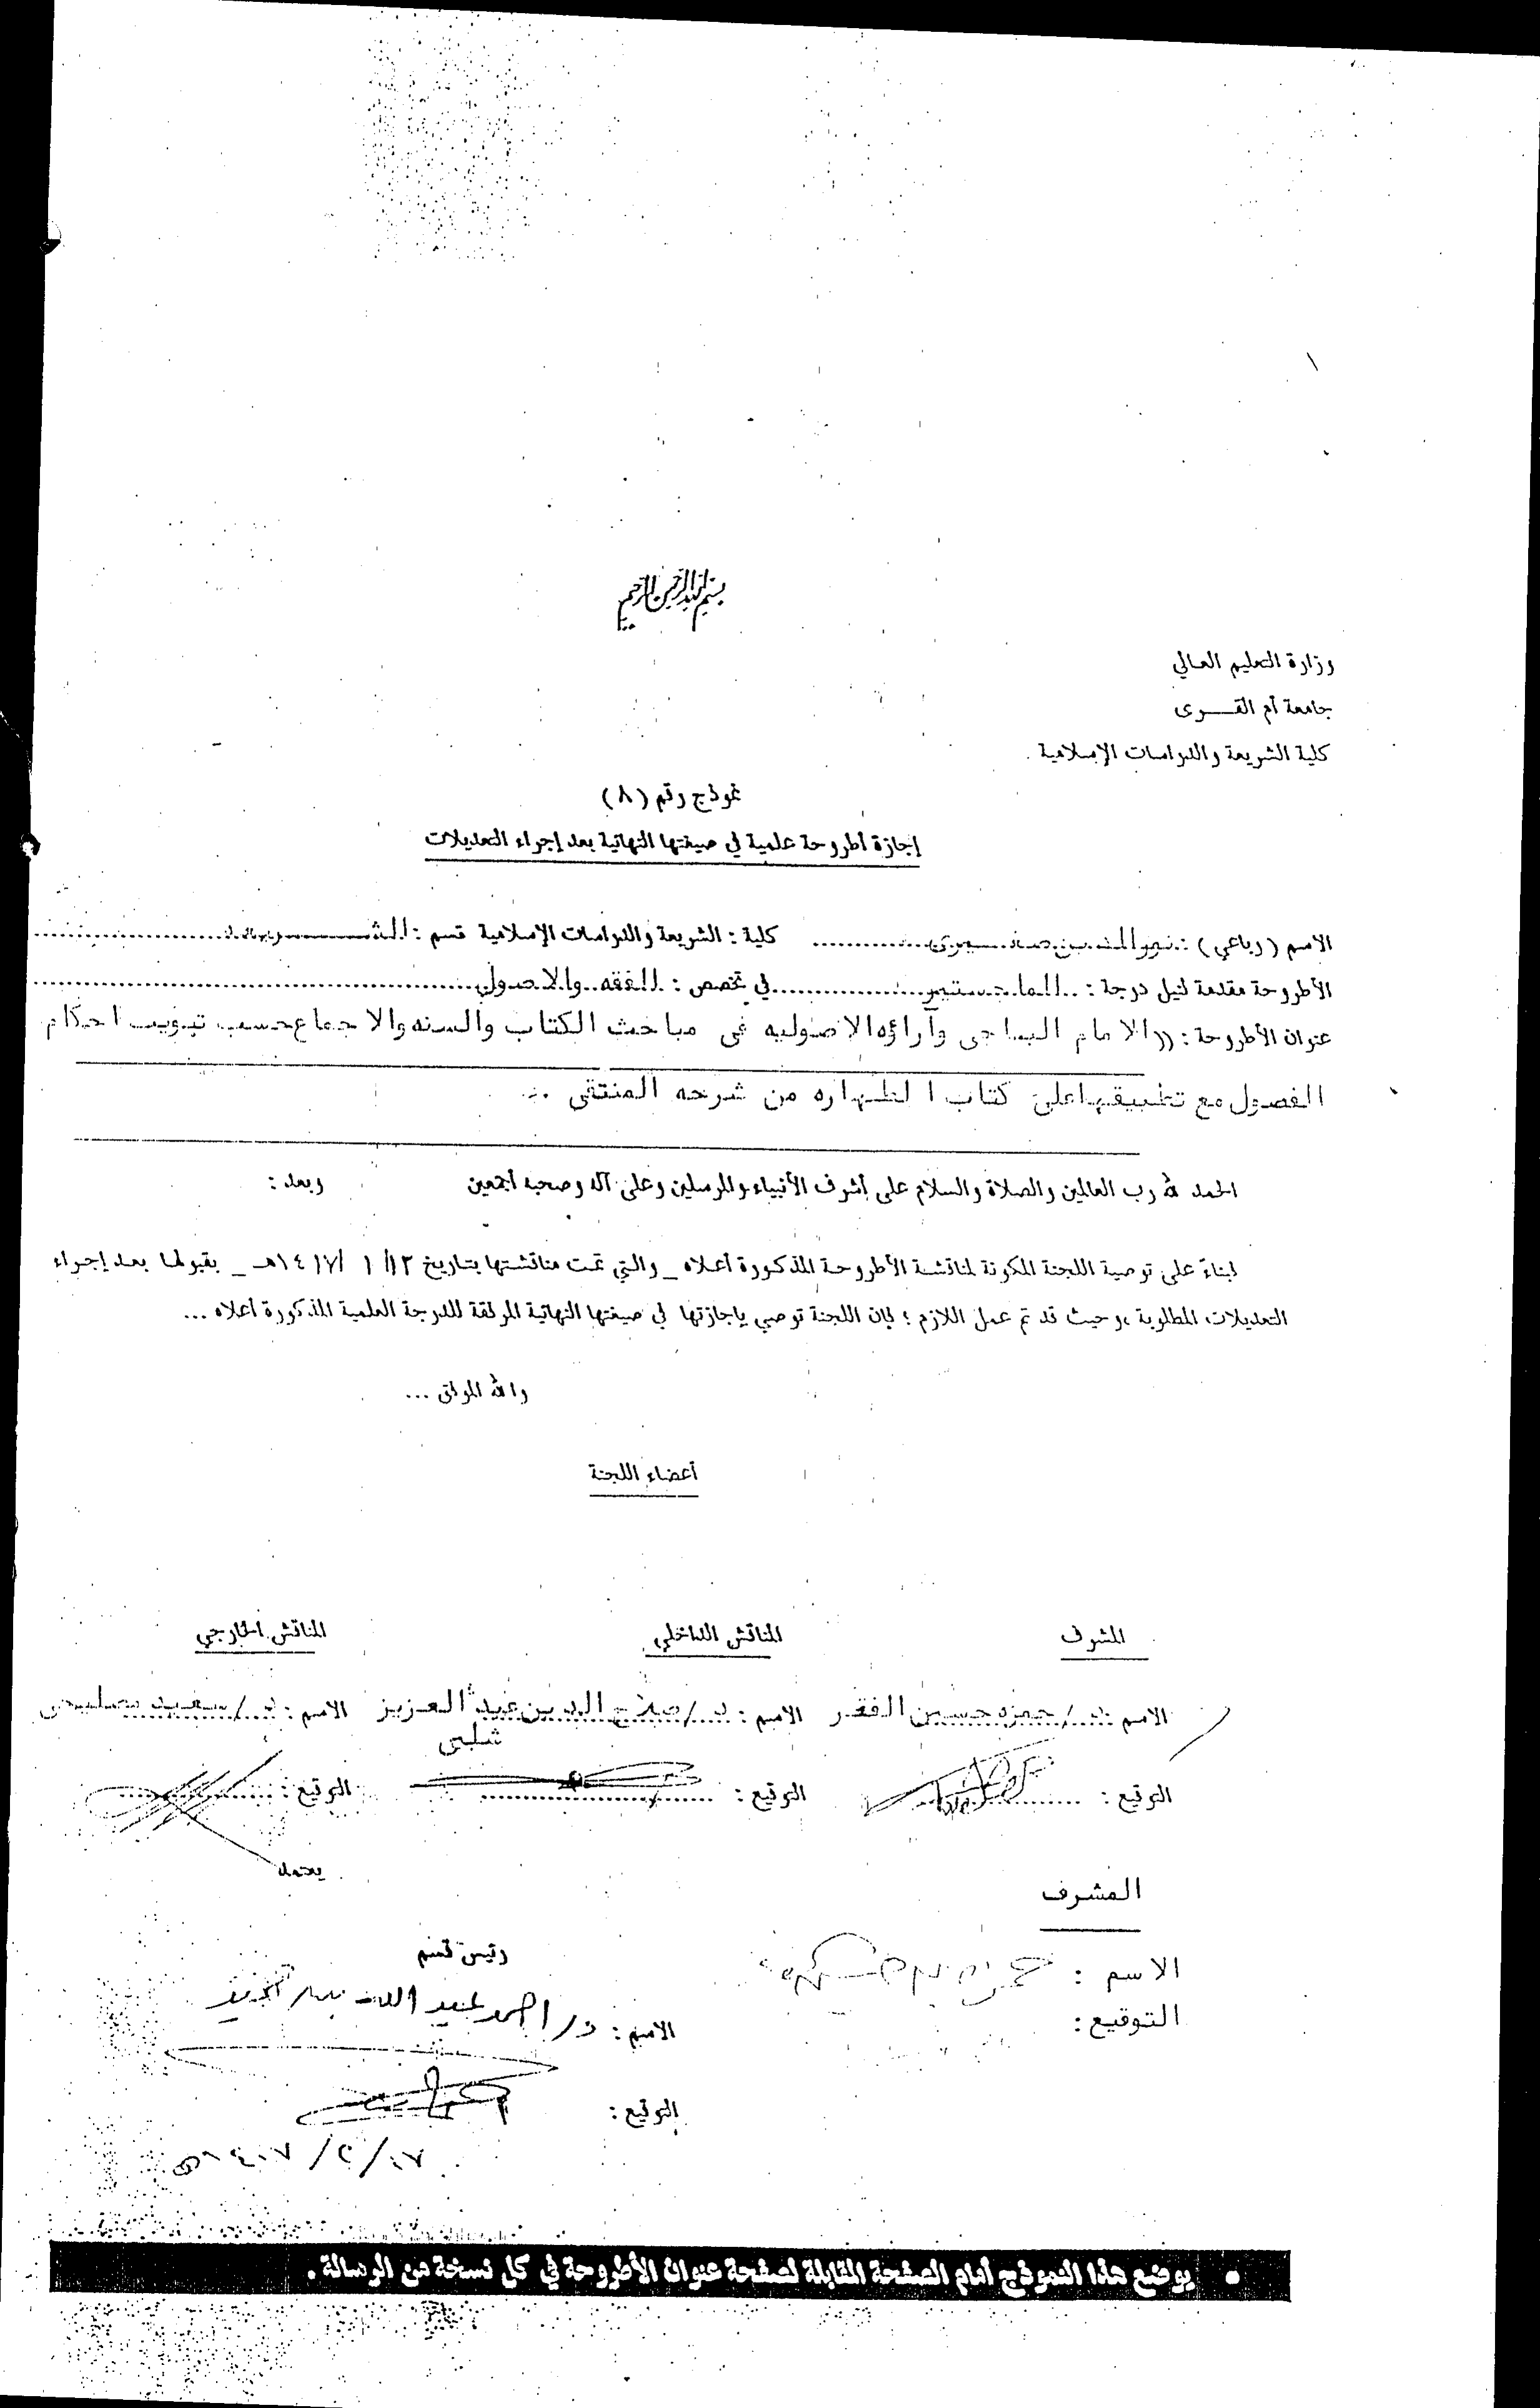 بسم الله الرحمن الرحيم
وزارة التعليم العالي
جامعة أم القـــرى
كلية الشريعة والدراسات الإسلامية
نموذج رقم (٨)
إجازة أطروحة علمية في صيغتها النهائية بعد إجراء التعديلات
الاسم (رباعي) : كلية : الشريعة والدراسات الإسلامية قسم : الشريعة
الأطروحة مقدمة لنيل درجة : الماجستير في تخصص : الفقه والاصول
عنوان الأطروحة : ((الامام الباجى وآراؤه الاصوليه فى مباحث الكتاب والسنه والاجماع حسب تبويب احكام
الفصول مع تطبيقها على كتاب الطهاره من شرحه المنتقى
الحمد لله رب العالمين والصلاة والسلام على أشرف الأنبياء والمرسلين وعلى آله وصحبه أجمعين وبعد :
فبناءً على توصية اللجنة المكونة لمناقشة الأطروحة المذكورة أعلاه _ والتي تمت مناقشتها بتاريخ ١٢/ ١ /١٤١٧هـ _ بقبولها بعد إجراء
التعديلات المطلوبة ، وحيث قد تم عمل اللازم ؛ فإن اللجنة توصي بإجازتها في صيغتها النهائية المرفقة للدرجة العلمية المذكورة أعلاه ...
والله الموفق ...
أعضاء اللجنة
المشرف المناقش الداخلي المناقش الخارجي
الاسم : د/ حمزه حسين الفعر الاسم : د/ صلاح الدين عبد العزيز الاسم : د/ سعيد
شلبى
التوقيع : التوقيع : التوقيع :
يعتمد
المشرف
رئيس قسم
الاسم :
الاسم : د/ احمد عبد الله
التوقيع :
التوقيع :
• يوضع هذا النموذج أمام الصفحة المقابلة لصفحة عنوان الأطروحة في كل نسخة من الرسالة .